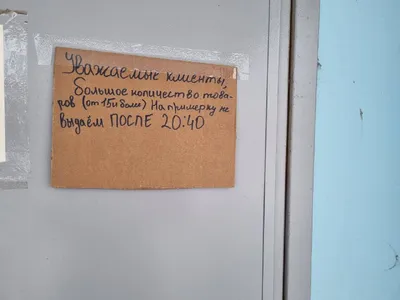 Уважаемые клиенты,
большое количество това-
ров (от 15 и более) На примерку не
выдаём ПОСЛЕ 20:40